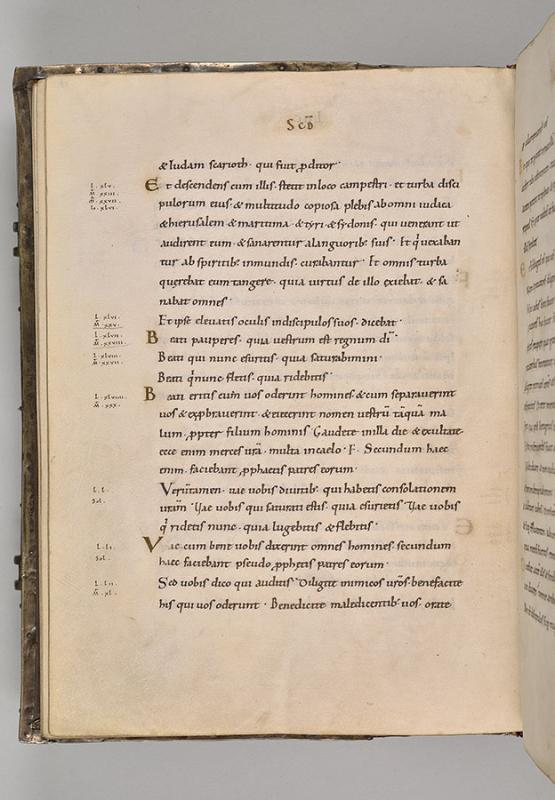 SCD̄
& Iudam scarioth · qui fuit ꝓditor ·
l. xlv. Et descendens cum illis · stetit inloco campestri · et turba disci
m̄. xxiii.
m̄. xxvii. pulorum eius · & multitudo copiosa plebis ab omni iudaea
l. xlvi. & hierusalem & maritima · & tyri · & sydonis · qui venerant ut
audirent eum · & sanarentur alanguorib; suis · Et q̇ uexaban
tur ab spiritib; inmundis · curabantur · Et omnis turba
querebat eum tangere · quia uirtus de illo exiebat · & sa
nabat omnes ·
l. xlvi. Et ipse eleuatis oculis indiscipulos suos · dicebat ·
m̄. xxv.
l. xlvii. Beati pauperes · quia uestrum est regnum dī ·
m̄. xxviii.
l. xlviii. Beati qui nunc esuritis · quia saturabimini ·
m̄. xxvii.
Beati q̇ nunc fletis · quia ridebitis ·
l. xlviiii. Beati eritis cum uos oderint homines & cum separauerint
m̄. xxx.
uos & exprobrauerint · & eiecerint nomen uestrū tāquā ma
lum · ꝓpter filium hominis · Gaudete inilla die & exultate ·
ecce enim merces urā · multa incaelo · F · Secundum haec
enim · faciebant ꝓphaetis patres eorum ·
l. l. Verūtamen · uae uobis diuitib; qui habetis consolationem
sol. urām · Vae uobis qui saturati estis · quia esurietis · Vae uobis
q̇ ridetis nunc · quia lugebitis & flebitis ·
l. li. Vae cum bene uobis dixerint omnes homines · secundum
sol. haec faciebant pseudo ꝓphetis patres eorum ·
l. lii. Sed uobis dico qui auditis · Diligite inimicos urōs · benefacite
m̄. xl.
his qui uos oderunt · Benedicite maledicentib; uos · orate